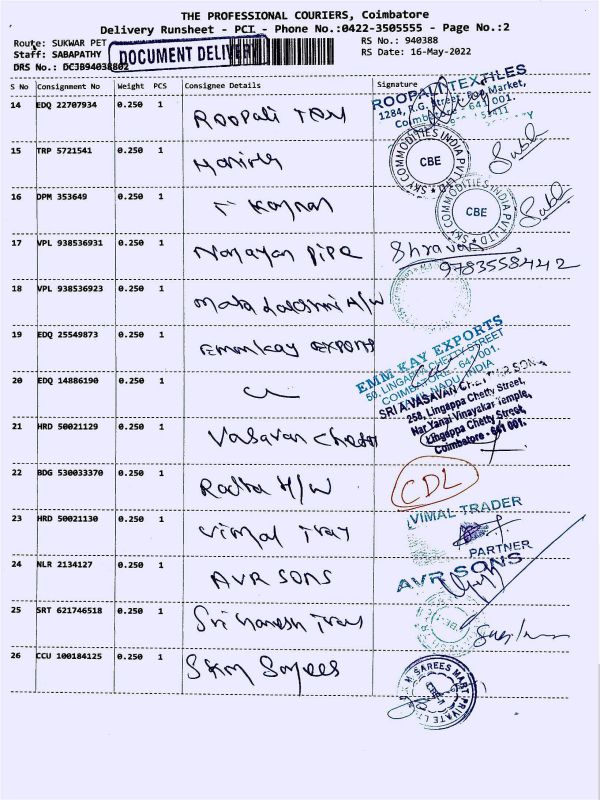 THE PROFESSIONAL COURIERS, Coimbatore
Delivery Runsheet - PCI - Phone No.:0422-3505555 - Page No.:2
Route: SUKWAR PET
RS No.: 940388
Staff: SABAPATHY
DOCUMENT DELIVERY
RS Date: 16-May-2022
DRS No.: DCJB94038802
S No Consignment No Weight PCS Consignee Details Signature
14 EDQ 22707934 0.250 1 Roopali Tex
ROOPALI TEXTILES
1284, R.G. Street, Market,
Coimbatore - 641 001.
15 TRP 5721541 0.250 1
SKY COMMODITIES INDIA PVT LTD
CBE
16 DPM 353649 0.250 1
SKY COMMODITIES INDIA PVT LTD
CBE
17 VPL 938536931 0.250 1 Narayan Pipe
Shravan
9783558442
18 VPL 938536923 0.250 1 Mata Lakshmi H/W
19 EDQ 25549873 0.250 1 Emmkay Exports
EMM KAY EXPORTS
50, LINGAPPA CHETTY STREET
COIMBATORE - 641 001.
TAMIL NADU, INDIA
20 EDQ 14886190 0.250 1
SRI A. VASAVAN CHETTIAR SON
258, Lingappa Chetty Street,
Nar Yanai Vinayakar Temple,
Lingappa Chetty Street,
Coimbatore - 641 001.
21 HRD 50021129 0.250 1 Vasavan Chetti
22 BDG 530033370 0.250 1 Radha H/W
CDL
23 HRD 50021130 0.250 1 Vimal Trad
VIMAL TRADER
PARTNER
24 NLR 2134127 0.250 1 AVR SONS
AVR SONS
25 SRT 621746518 0.250 1 Sri Ganesh Trad
26 CCU 100184125 0.250 1 SKM Sarees
SAREES MART PRIVATE LTD